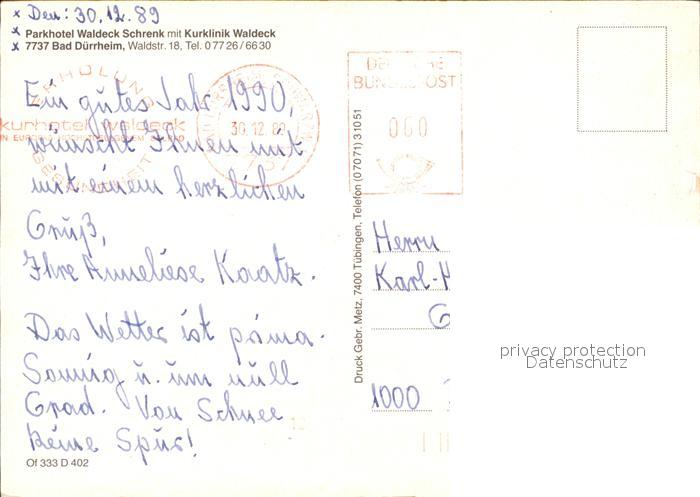 Den: 30.12.89
Parkhotel Waldeck Schrenk mit Kurklinik Waldeck
7737 Bad Dürrheim, Waldstr. 18, Tel. 0 77 26 / 66 30
Ein gutes Jahr 1990,
wünscht Ihnen mit
mit einem herzlichen
Gruß,
Ihre Anneliese Kaatz.
Das Wetter ist prima.
Sonnig u. um null
Grad. Von Schnee
keine Spur!
Of 333 D 402
ERHOLUNG
kurhotel waldeck
GESUNDHEIT
30.12.89
DEUTSCHE
BUNDESPOST
060
Druck Gebr. Metz, 7400 Tübingen, Telefon (07071) 31051
Herrn
Karl-H
G
1000
privacy protection
Datenschutz